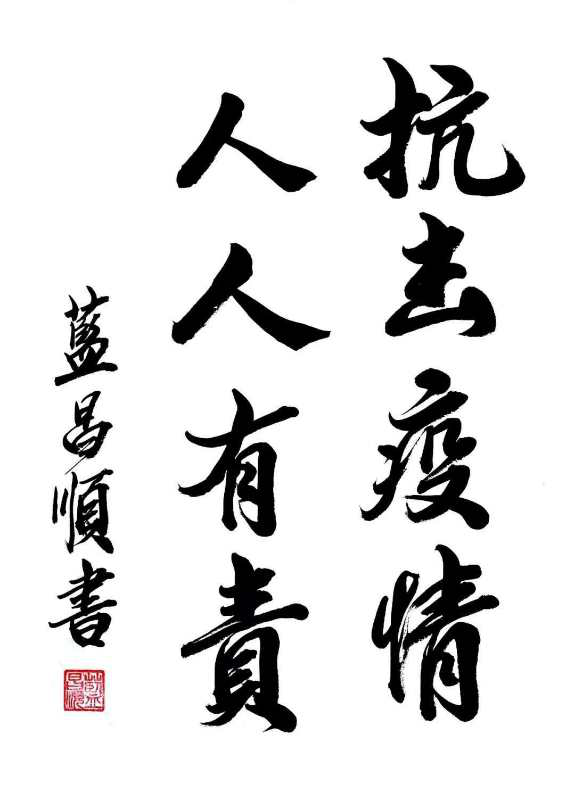 抗击疫情
人人有責
藍昌順書